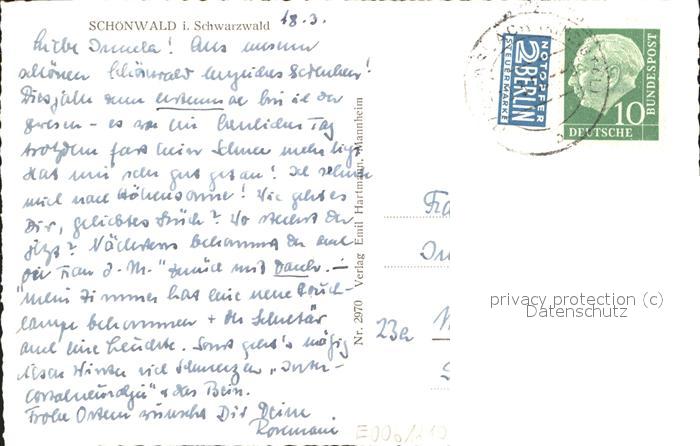 SCHÖNWALD i. Schwarzwald
18.3.
Liebe Irmela! Aus unserm
schönen Schönwald herzliches Gedenken!
Dies Jahr zum erstenmal bin ich da
gewesen - es war ein herrlicher Tag
trotzdem fast keine Schnee mehr liegt
Hat mir sehr gut getan! Ich sehne
mich nach Höhensonne! Wie geht es
Dir, geliebtes Stück? Wo steckst Du
jetzt? Nächstens bekommst Du auch
Frau J. M." zurück mit Dank. -
mein Zimmer hat eine neue
lampe bekommen + der Sekretär
auch eine Leuchte. Sonst geht's mäßig
Winter viel Schmerzen "Inter-
costalneuralgie" + das Bein.
Frohe Ostern wünscht Dir Deine
Rosemarie
Nr. 2970 Verlag Emil Hartmann, Mannheim
NOTOPFER
2 BERLIN
STEUERMARKE
10
DEUTSCHE
BUNDESPOST
Fra
23a
privacy protection (c)
Datenschutz